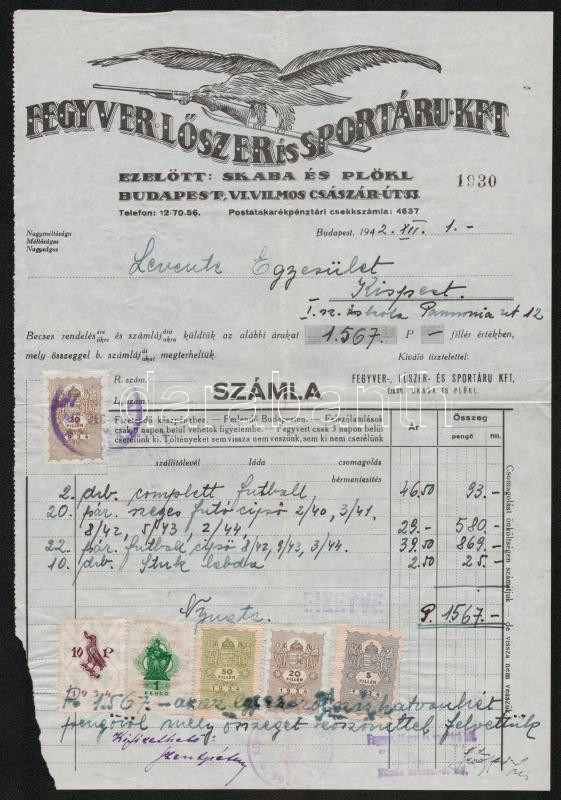 FEGYVER LŐSZER ÉS SPORTÁRU-KFT
EZELŐTT: SKABA ÉS PLÖKL
BUDAPEST, VI. VILMOS CSÁSZÁR-ÚT 33.
1930
Telefon: 12-70-56. Postatakarékpénztári csekkszámla: 4637
Nagyméltóságú
Méltóságos
Nagyságos
Budapest, 1942. XII. 1.-
Levente Egyesület
Kispest.
I. sz. iskola Pannonia ut 12
Becses rendelésére/ükre és számlájára/ukra küldtük az alábbi árukat 1.567.- P - fillér értékben,
mely összeggel b. számláját/ukat megterheltük.
Kiváló tisztelettel:
FEGYVER-, LŐSZER- ÉS SPORTÁRU KFT,
Ezelőtt: SKABA ÉS PLÖKL
R. szám
L. szám
SZÁMLA
Fizetendő készpénzben. - Perlendő Budapesten. - Felszólamlások
csak 3 napon belül vehetők figyelembe. - Fegyvert csak 3 napon belül
cserélünk ki. Töltényeket sem vissza nem veszünk, sem ki nem cserélünk
Ár
Összeg
pengő fill.
szállítólevél láda csomagolás
bérmentesítés
2. drb. complett futball 46.50 93.-
20. pár. szeges futó cipő 2/40, 3/41,
8/42, 5/43, 2/44, 29.- 580.-
22. pár. futball cipő 8/42, 9/43, 3/44. 39.50 869.-
10. drb. Stuk labda 2.50 25.-
Csomagolást önköltségen számítjuk de vissza nem vesszük
FIZETVE
P. 1567.-
10 P
50 FILLÉR
20 FILLÉR
5 FILLÉR
P. 1.567.- azaz egyezerötszázhatvanhét
pengőről mely összeget köszönettel felvettük
Kifizethető:
darabanth